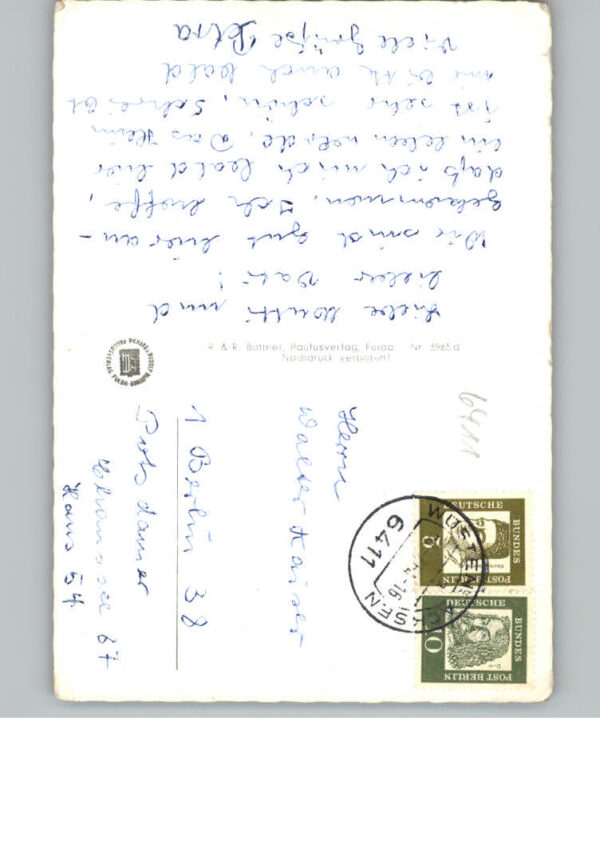 Liebe Mutti und
lieber Vati!
Wir sind gut hier an-
gekommen. Ich hoffe,
daß ich mich bald hier
ein leben werde. Das Heim
ist sehr schön. Schreibt
mir bitte auch bald
Viele Grüße Petra
R. & R. Büttner, Paulusverlag, Fulda Nr. 3965 d
Nachdruck verboten!
6411
Herrn
Walter Kaiser
1 Berlin 38
Potsdamer
Chaussee 67
Haus 54
WÜSTENSACHSEN
6411
-16
DEUTSCHE
BUNDES
POST BERLIN
5
DEUTSCHE
BUNDES
POST BERLIN
10
Dürer